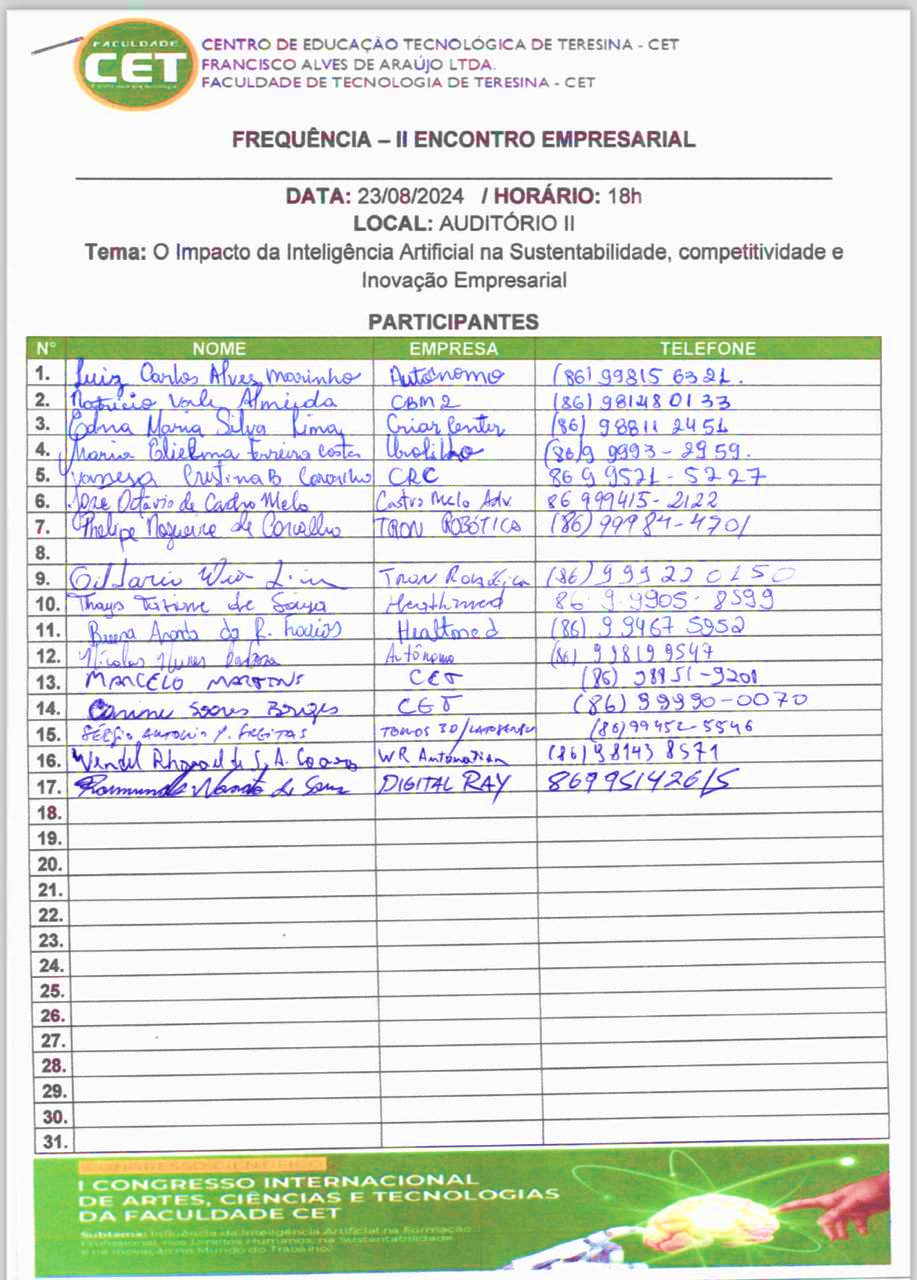 FACULDADE
CET
CENTRO DE EDUCAÇÃO TECNOLÓGICA DE TERESINA - CET
FRANCISCO ALVES DE ARAÚJO LTDA.
FACULDADE DE TECNOLOGIA DE TERESINA - CET
FREQUÊNCIA – II ENCONTRO EMPRESARIAL
DATA: 23/08/2024 / HORÁRIO: 18h
LOCAL: AUDITÓRIO II
Tema: O Impacto da Inteligência Artificial na Sustentabilidade, competitividade e
Inovação Empresarial
PARTICIPANTES
Nº NOME EMPRESA TELEFONE
1. Luiz Carlos Alves Marinho Autônomo (86) 99815 6321.
2. Vale Almeida (86) 98148 0133
3. Edna Maria Silva Lima Criar Center (86) 98811 2451
4. Maria Ferreira Costa (86) 9 9993-2959.
5. Vanessa Cristina B Carvalho CRC 86 9 9521-5227
6. José Octávio de Castro Melo Castro Melo Adv. 86 999415-2122
7. Phelipe Nogueira de Carvalho TRON ROBÓTICA (86) 99984-4701
8.
9. Tron Robótica (86) 999 220150
10. Thays de Sousa 86 9.9905-8599
11. R. (86) 9 9467 5952
12. Nícolas Nunes Autônomo (86) 998199547
13. MARCELO MARTINS CET (86) 98851-9201
14. Soares Borges CET (86) 99990-0070
15. SÉRGIO ANTONIO P. FREITAS (86) 99452-5546
16. Wendel de S. A. WR Automation (86) 98143 8571
17. Raimundo de DIGITAL RAY 86995142615
18.
19.
20.
21.
22.
23.
24.
25.
26.
27.
28.
29.
30.
31.
I CONGRESSO INTERNACIONAL
DE ARTES, CIÊNCIAS E TECNOLOGIAS
DA FACULDADE CET
Subtema: Influência da Inteligência Artificial na Formação
Profissional, nos Direitos Humanos, na Sustentabilidade
e na Inovação no Mundo do Trabalho.